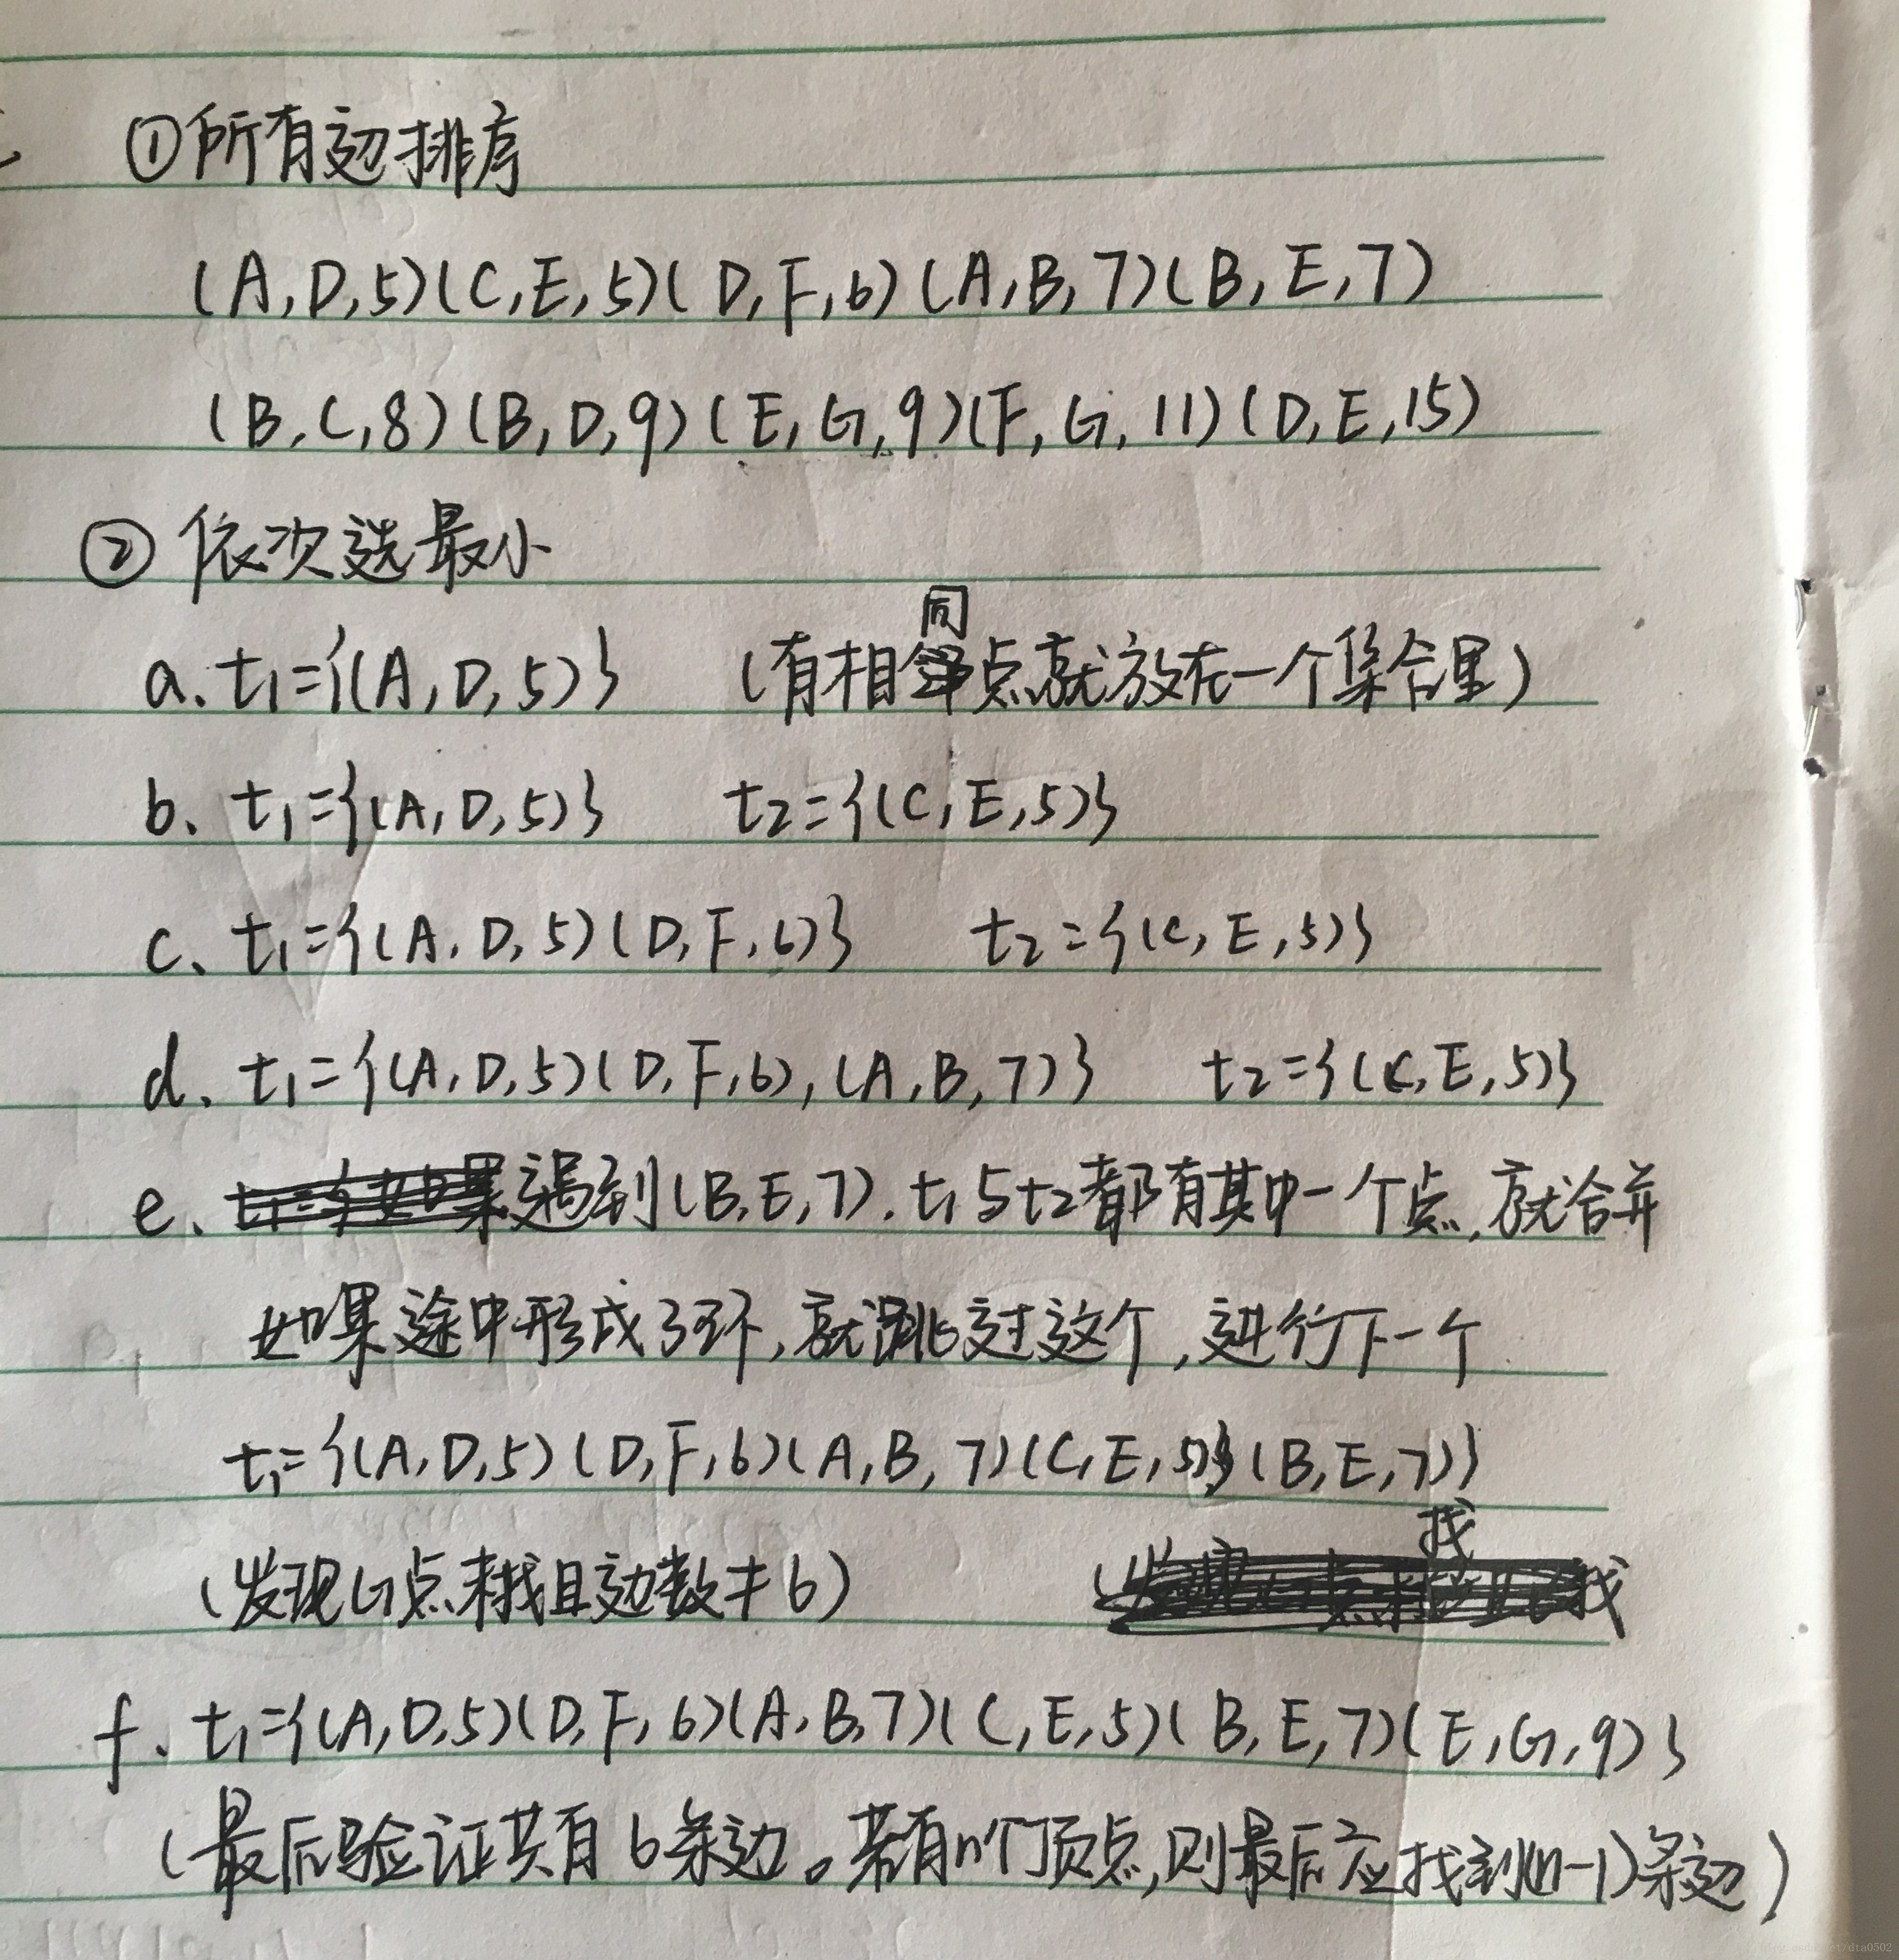 ①所有边排序
(A,D,5)(C,E,5)(D,F,6)(A,B,7)(B,E,7)
(B,C,8)(B,D,9)(E,G,9)(F,G,11)(D,E,15)
②依次选最小
a.t1={(A,D,5)} (有相同点就放在一个集合里)
b、t1={(A,D,5)} t2={(C,E,5)}
c、t1={(A,D,5)(D,F,6)} t2={(C,E,5)}
d、t1={(A,D,5)(D,F,6),(A,B,7)} t2={(C,E,5)}
e、遇到(B,E,7).t1与t2都有其中一个点,就合并
如果途中形成了环,就跳过这个,进行下一个
t1={(A,D,5)(D,F,6)(A,B,7)(C,E,5)(B,E,7)}
(发现G点未找且边数≠6)
f、t1={(A,D,5)(D,F,6)(A,B,7)(C,E,5)(B,E,7)(E,G,9)}
(最后验证共有6条边。若有n个顶点,则最后应找到(n-1)条边)